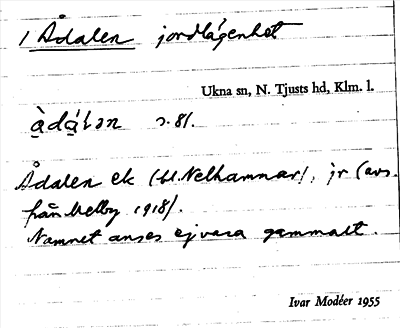 1 Ådalen jordlägenhet
Ukna sn, N. Tjusts hd, Klm. l.
s. 81.
Ådalen ek (bl. Nelhammar), jr (avs.
från Melby 1918).
Namnet anses ej vara gammalt.
Ivar Modéer 1955